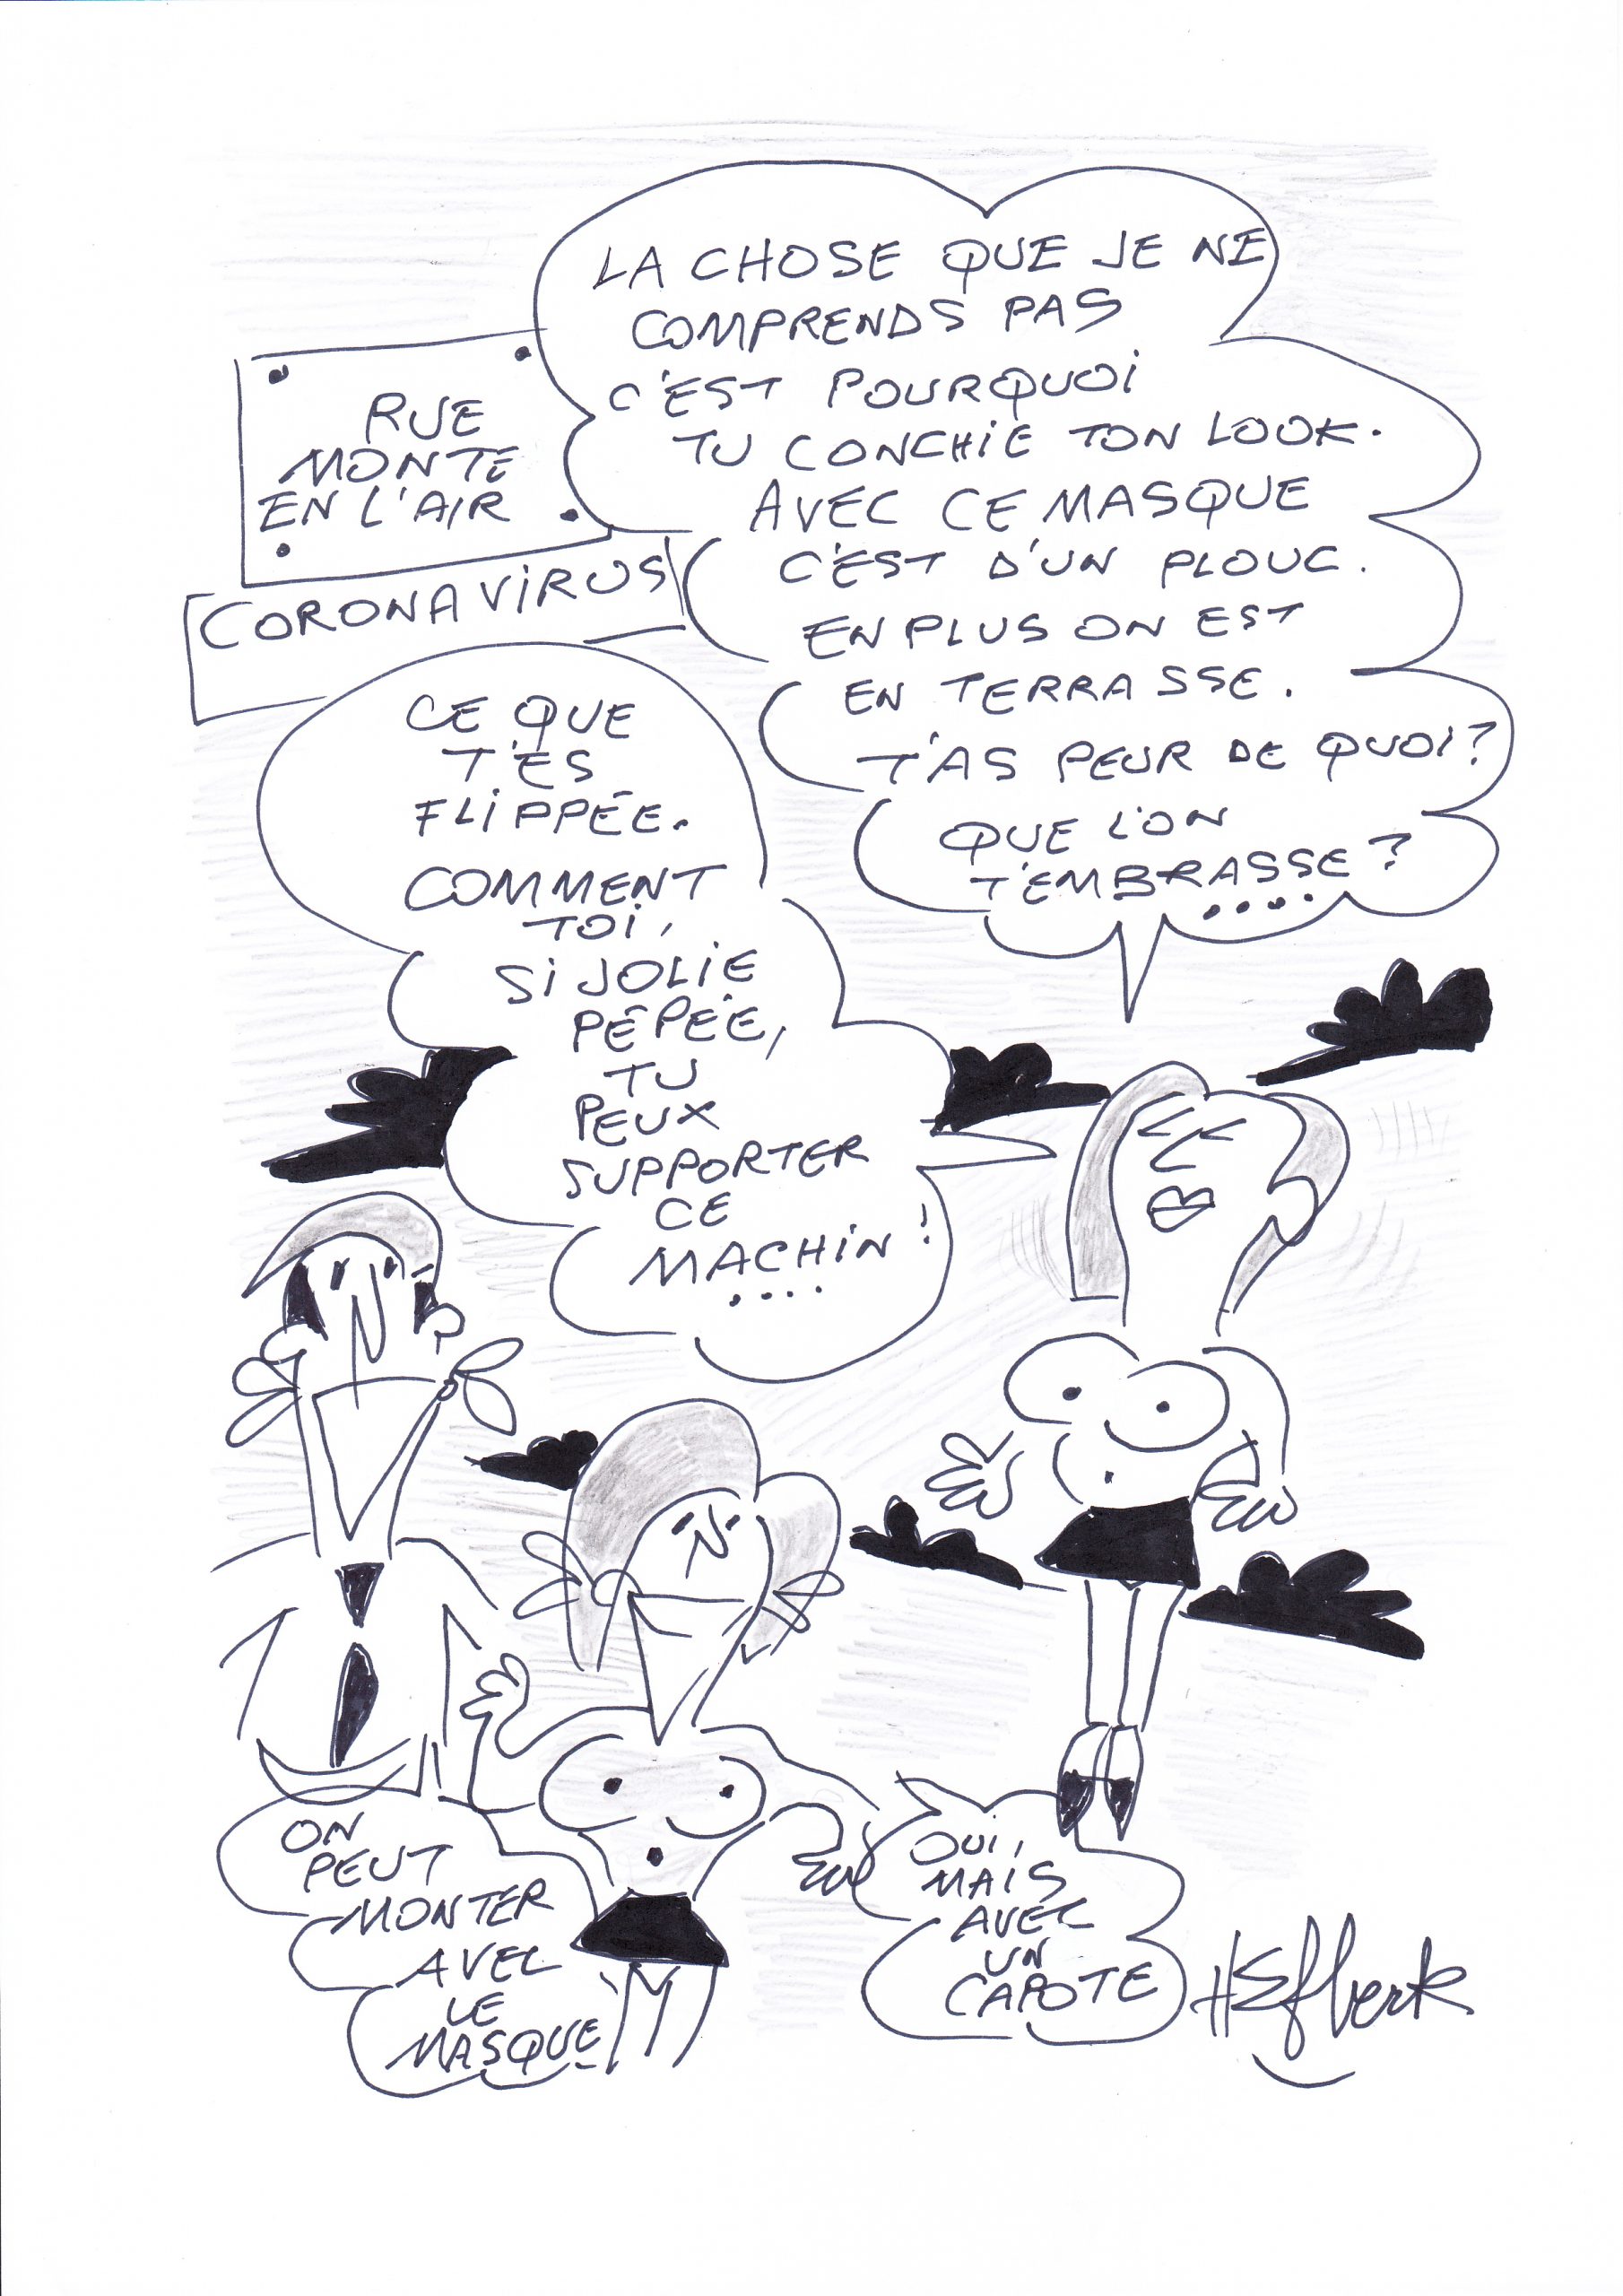 LA CHOSE QUE JE NE
COMPRENDS PAS
C'EST POURQUOI
TU CONCHIE TON LOOK.
AVEC CE MASQUE
C'EST D'UN PLOUC.
EN PLUS ON EST
EN TERRASSE.
T'AS PEUR DE QUOI?
QUE L'ON
T'EMBRASSE?
....
RUE
MONTE
EN L'AIR
CORONAVIRUS
CE QUE
T'ES
FLIPPÉE.
COMMENT
TOI,
SI JOLIE
PÉPÉE,
TU
PEUX
SUPPORTER
CE
MACHIN!
....
ON
PEUT
MONTER
AVEC
LE
MASQUE
OUI,
MAIS
AVEC
UN
CAPOTE